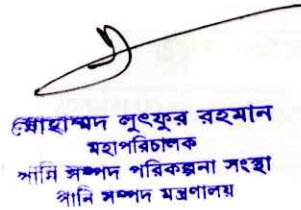 মোহাম্মদ লুৎফুর রহমান
মহাপরিচালক
পানি সম্পদ পরিকল্পনা সংস্থা
পানি সম্পদ মন্ত্রণালয়